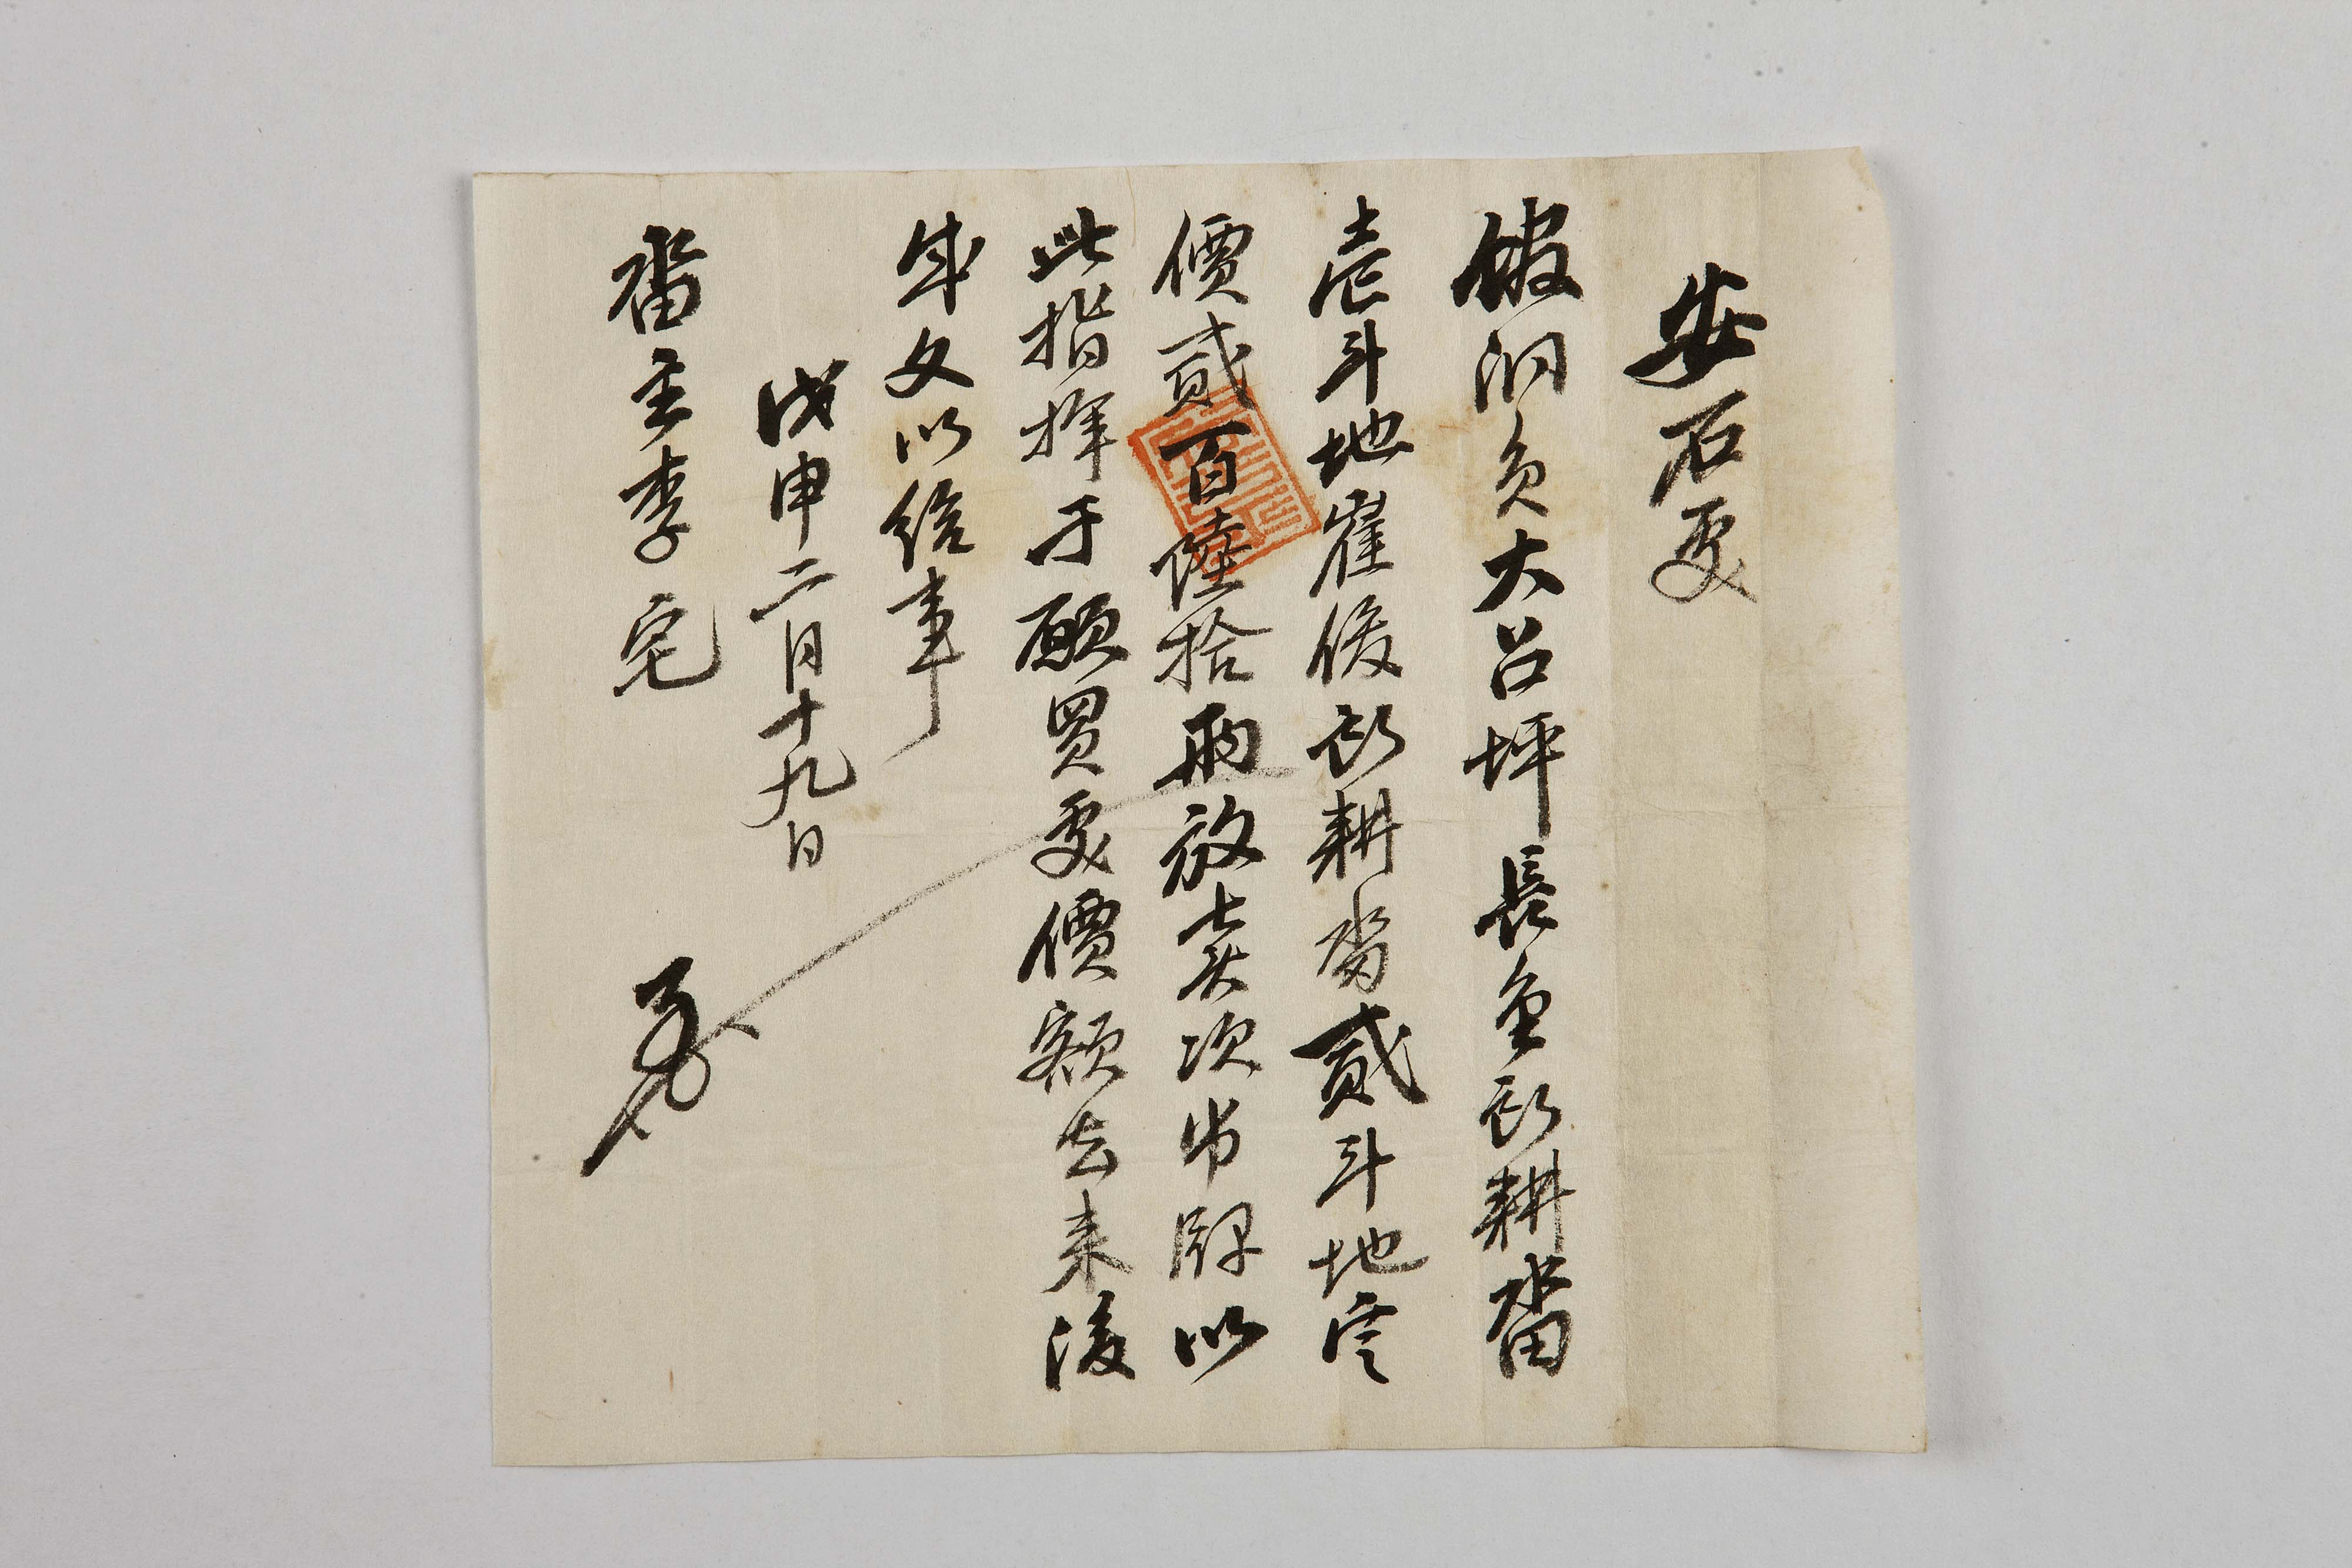 安石處
㫆洞員大呂坪長金所耕畓
壱斗地崔俊所耕畓貳斗地㝎
價貳百陸拾兩放賣次出牌以
此指揮于願買處價額去來後
成文以給事
戊申二月十九日
畓主李宅